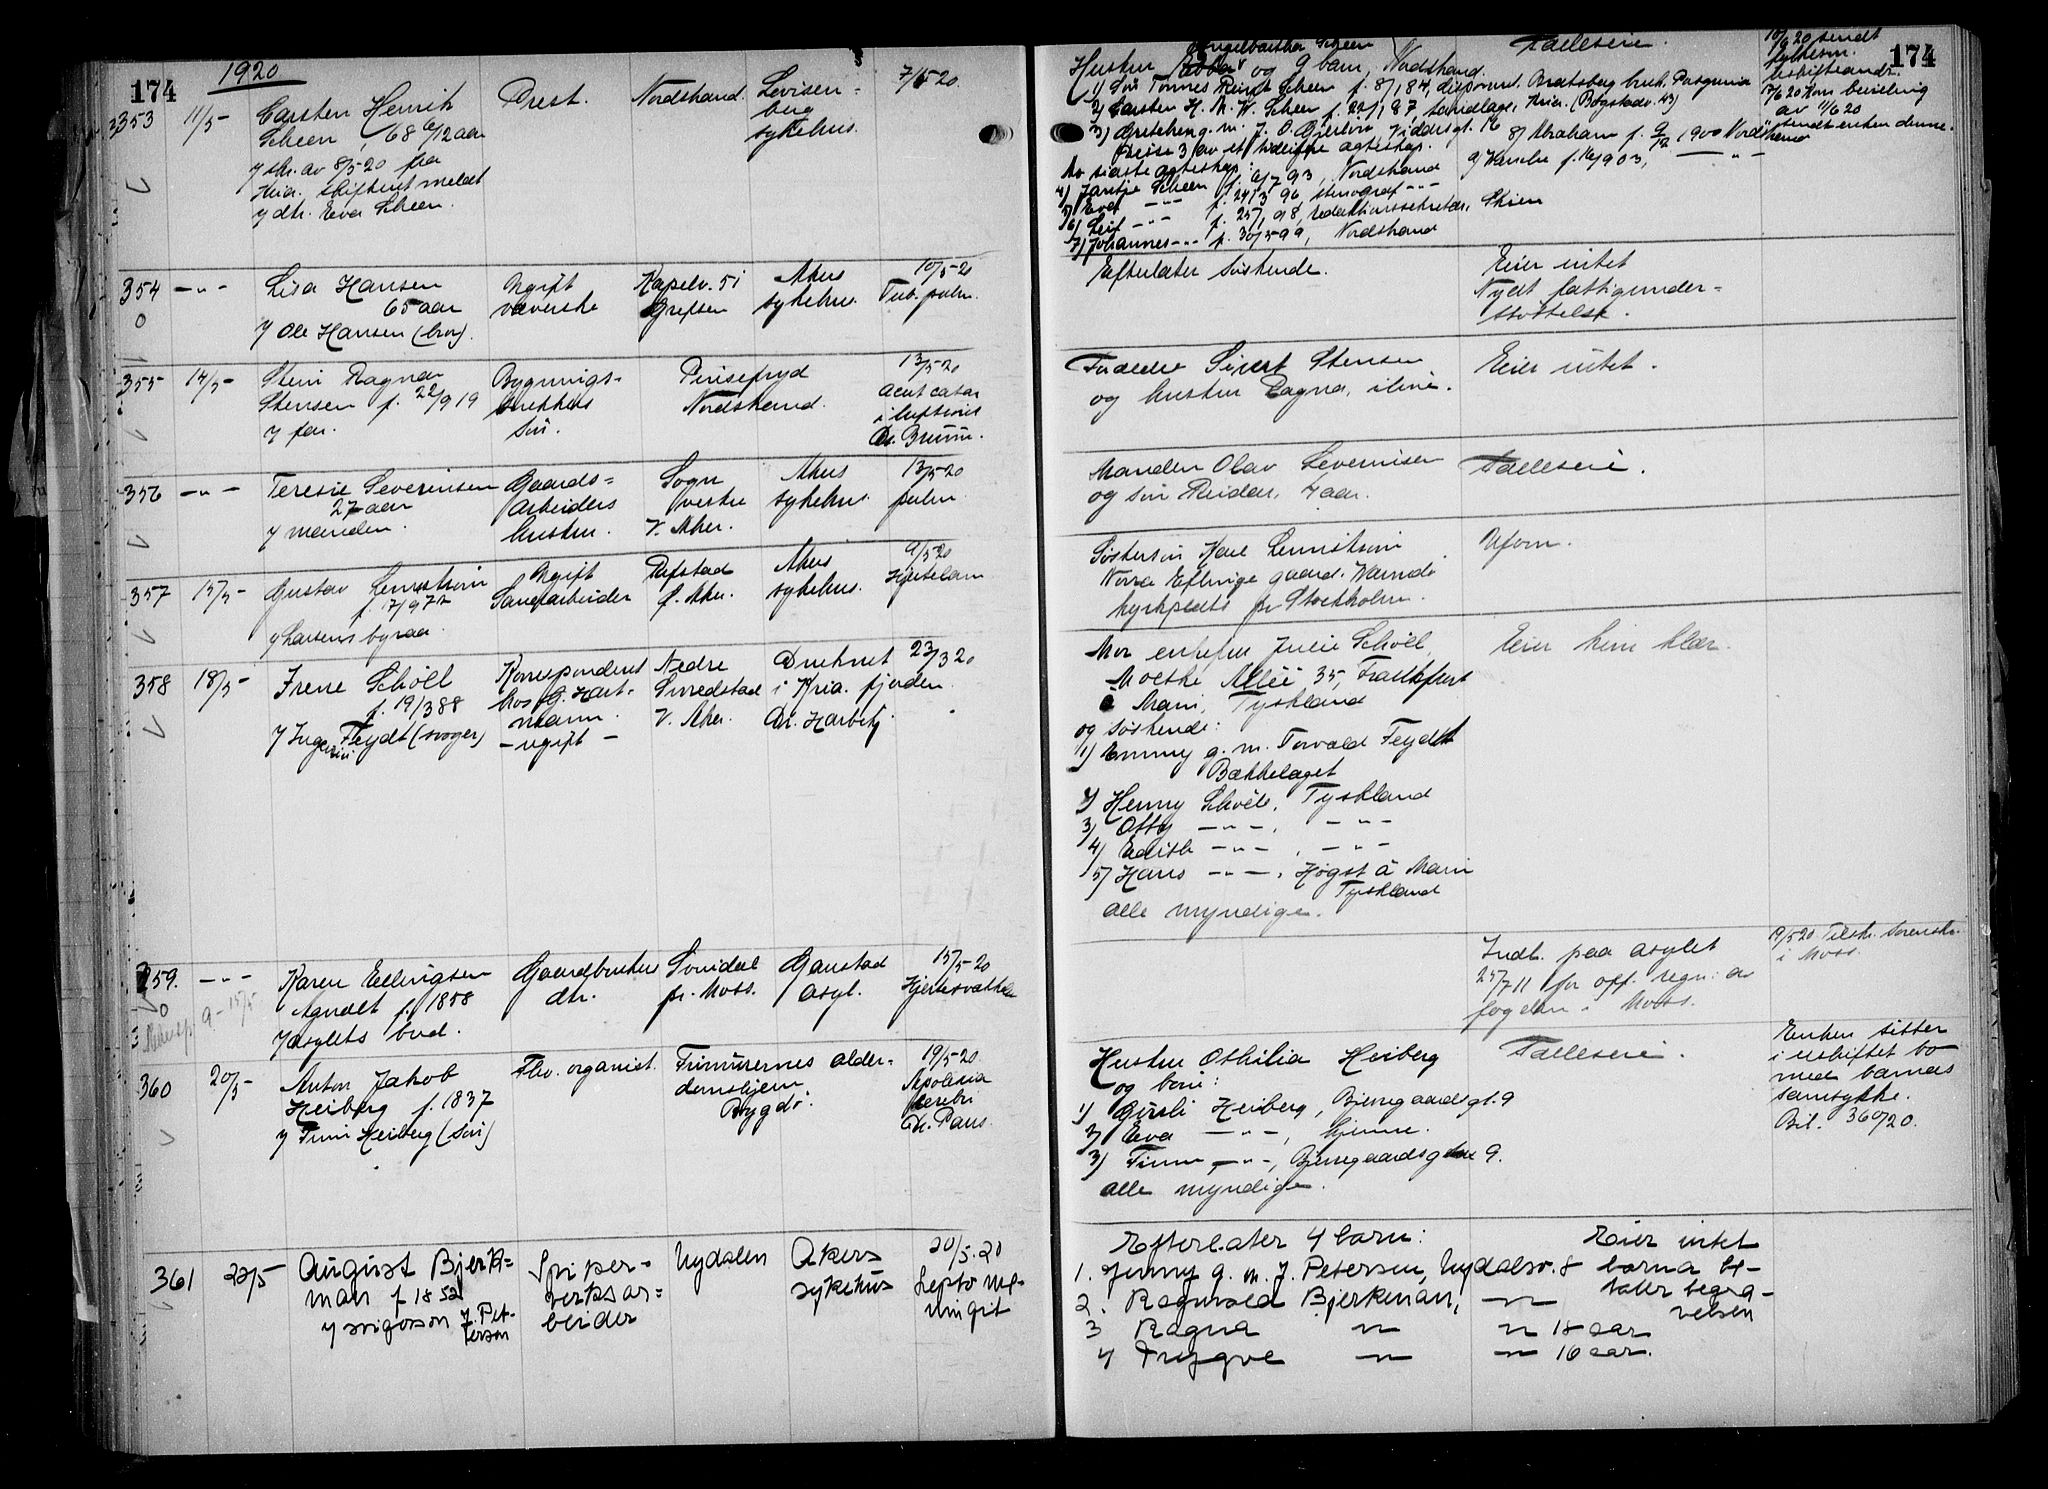 174
1920
353
11/5-
Carsten Henrik
Scheen, 68 6/12 aar
7 skr. av 8/5-20 fra
Kria. skifteret meldt
7 dtr. Eva Scheen.
Prest.
Nordstrand.
Lovisen-
berg
sykehus.
7/5 20.
354
-"-
Lisa Hansen
65 aar
7 Ole Hansen (bror).
Ugift
væverske
Kapelv. 51
Grefsen
Akers
sykehus.
10/5-20
Tub. pulm.
355
14/5-
Stein Ragnar
Stensen f. 22/9 19
7 far.
Bygnings-
snekkers
søn.
Prisefryd
Nordstrand.
13/5-20
Acut catar
i luftveie
Dr. Bruun.
356
-"-
Teresie Severinsen
27 aar
7 manden.
Gaards-
arbeiders
hustru.
Sogn
vestre
V. Aker.
Akers
sykehus.
13/5-20
pulm.
357
15/5-
Gustav
f. 17/9 77
7 Larsens byraa.
Ugift
Refstad
Ø. Aker.
Akers
sykehus.
9/5-20
358
18/5-
Irene Schöll
f. 19/3 88
7 Ingeniør Feydt (svoger)
Korrespondent
hos G. Hart-
mann.
- ugift -
Nedre
Smedstad
V. Aker.
Druknet
i Kria. fjorden.
Dr. Harbitz
23/3 20
359.
-"-
Karen Ellingsen
Agnalt f. 1858
7 asylets bud.
Gaardbrukers
dtr.
Sonidal
pr. Moss.
Gaustad
asyl.
15/5-20
360
20/5-
Anton Jakob
Heiberg f. 1837
7 Finn Heiberg (søn)
Fhv. organist.
Frimurernes alder-
domshjem
Bygdø.
19/5-20
Apoplexia
cerebri
Dr. Paus.
361
22/5
August Bjerk-
man f 1852
7 svigersøn J. Pet-
terson
Spiker-
verksar-
beider
Nydalen
Akers
sykehus
20/5.20
Septo Me-
ningit
174
Engelbartha Scheen
Hustru og 9 barn, Nordstrand.
1) Søn Tønnes Reinst Scheen f. 8/1 84, disponent. Bratsberg bruk. Porsgrund
2) Carsten H. M. W. Scheen f. 22/1 87, Kria. (Bogstadv. 43)
3) Gretchen g. m. J. O. Gjerløw, Viddersgt. 16
Disse 3 av et tidligere ægteskap.
Av sidste ægteskap:
4) Jantje Scheen f. 6/7 93, Nordstrand
5) Eva -"- f. 24/3 96, stenograf -"-
6) Leif -"- f. 25/1 98, redaktionssekretær, Skien
7) Johannes -"- f. 30/5 99, Nordstrand
8) Abraham f. 9/12 1900 Nordstrand
9) f. 16/ 903, -"-
Fælleseie.
10/9 20 sendt
fylkesm.
uskifteandr.
7/6 20 Kom bevilling
av 11/6 20
sendt enken denne.
Efterlater søskende.
Eier intet
Nydt fattigunder-
støttelse.
Forældre Sivert Stensen
og hustru Ragna, ilive.
Eier intet.
Manden Olav Severinsen
og søn Reidar, 4 aar.
Fælleseie.
Søstersøn Karl
Norra Eflinge gaard.
kyrkpedts pr Stockholm.
Uform.
Mor enkefru Julie Schöll,
Moltke Allée 35, Frankfurt
a Main, Tyskland
og søskende:
1) Emmy g. m. Torvald Feydt
Bækkelaget
2) Henny Schöll, Tyskland
3) Otty -"-, -"-
4) Edith -"-, -"-
5) Hans -"-, Høgst a Main
Tyskland
alle myndige.
Eier kun klær.
Indl. paa asylet
25/7 11 for off. regn: av
fogden i Moss.
19/5 20 Tilskr. Sorenskr.
i Moss.
Hustru Othilia Heiberg
og børn:
1) Heiberg, Bjerregaardsgt. 9
2) Eva -"-, hjemme.
3) Finn -"-, Bjerregaardsgate 9.
alle myndige.
Fælleseie.
Enken sitter
i uskiftet bo
med barnas
samtykke.
Bil. 360/20.
Efterlater 4 barn:
1. Jenny g. m. J. Petersen, Nydalsv. 8
2. Ragnvald Bjerkman, -"-
3 Ragna -"- -"- 18 aar
4 Trygve -"- -"- 16 aar.
Eier intet
barna be-
taler begra-
velsen